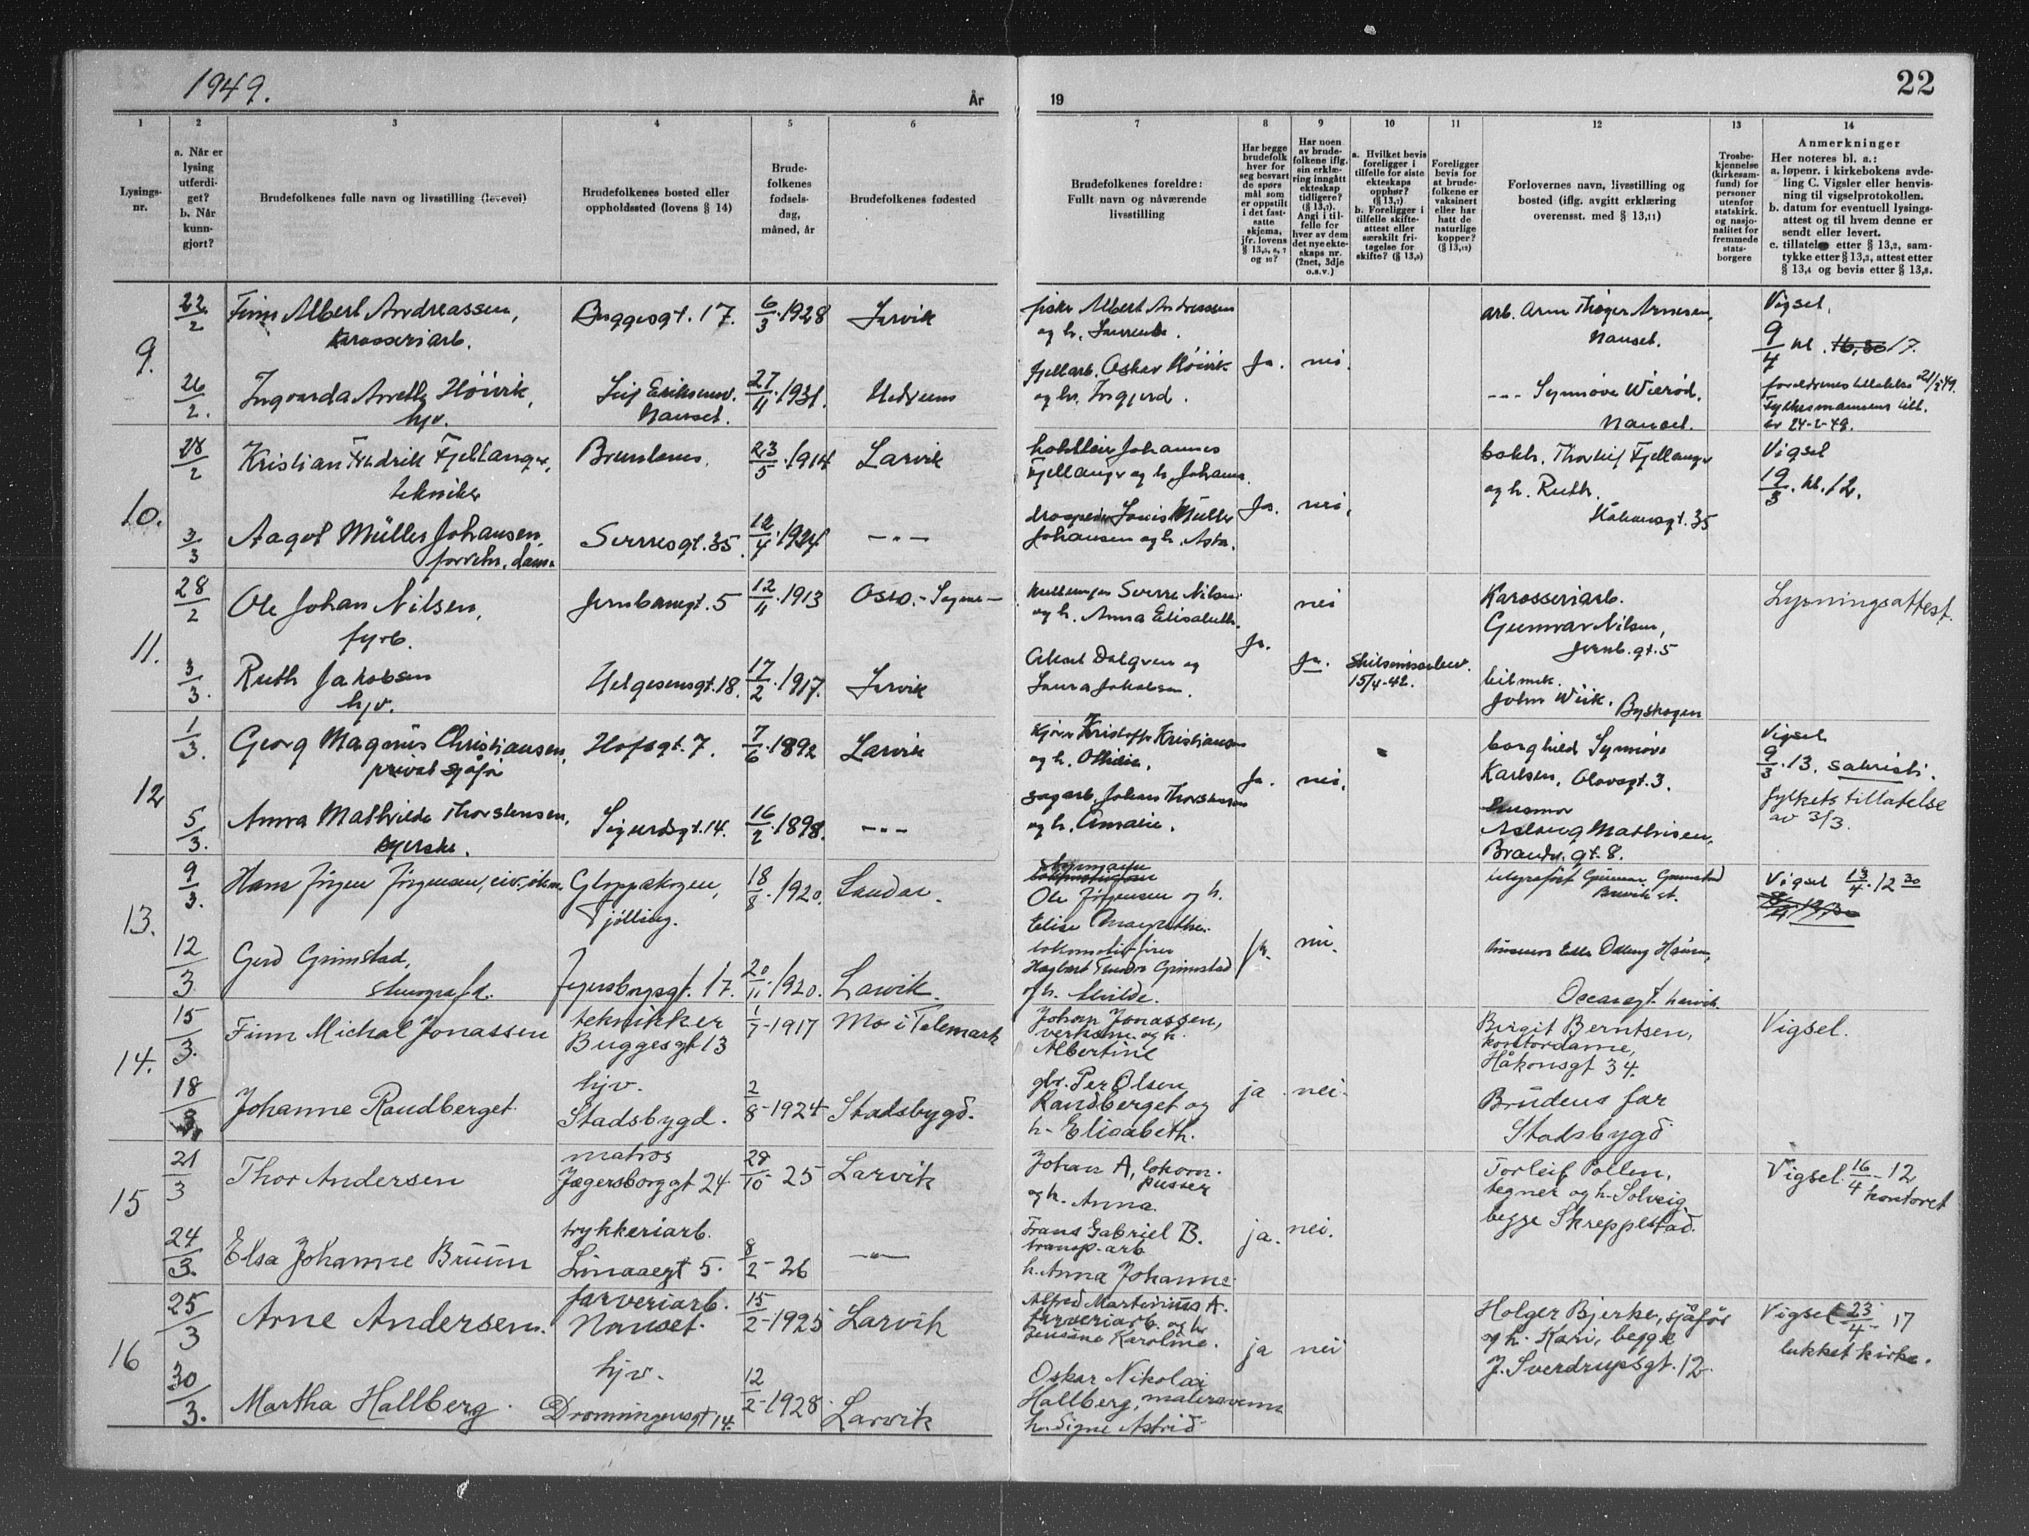 1949.
År
19
22
1
2
3
4
5
6
7
8
9
10
11
12
13
14
Lysings-
nr.
a. Når er
lysing
utferdi-
get?
b. Når
kunn-
gjort?
Brudefolkenes fulle navn og livsstilling (levevei)
Brudefolkenes bosted eller
oppholdssted (lovens § 14)
Brude-
folkenes
fødsels-
dag,
måned, år
Brudefolkenes fødested
Brudefolkenes foreldre:
Fullt navn og nåværende
livsstilling
Har begge
brudefolk
hver for
seg besvart
de spørs
mål som
er oppstilt
i det fast-
satte
skjema,
jfr. lovens
§ 13,5, 6, 7
og 10?
Har noen
av brude-
folkene iflg.
sin erklæ-
ring inngått
ekteskap
tidligere?
(§ 13,7).
Angi i til-
felle for
hver av dem
det nye ekte-
skaps nr.
(2net, 3dje
o.s.v.)
a. Hvilket bevis
foreligger i
tilfelle for siste
ekteskaps
opphør?
(§ 13,7)
b. Foreligger i
tilfelle skifte-
attest eller
særskilt fri-
tagelse for
skifte? (§ 13,8)
Foreligger
bevis for
at brude-
folkene er
vaksinert
eller har
hatt de
naturlige
kopper?
(§ 13,12)
Forlovernes navn, livsstilling og
bosted (iflg. avgitt erklæring
overensst. med § 13,11)
Trosbe-
kjennelse
(kirkesam-
fund) for
personer
utenfor
statskirk.
og nasjo-
nalitet for
fremmede
stats-
borgere
Anmerkninger
Her noteres bl. a.:
a. løpenr. i kirkebokens avde-
ling C. Vigsler eller henvis-
ning til vigselprotokollen.
b. datum for eventuell lysings-
attest og til hvem denne er
sendt eller levert.
c. tillatelse etter § 13,2, sam-
tykke etter § 13,3, attest etter
§ 13,4 og bevis etter § 13,8.
9.
22/2 Finn Albert Andreassen, Buggesgt. 17. 6/3 1928 Larvik
karosseriarb.
fisker Albert Andreassen
og h. Laurenze.
arb. Arne Thoger Arnesen,
Nanset.
Vigsel.
9/4 kl. 16,30 17.
26/2. Ingvarda Anette Höivik, Leif Eriksensv. 27/11 1931. Hedrum
hjv. Nanset.
fjellarb. Oskar Höivik Ja. nei.
og h. Ingjerd.
--- Synnøve Wierød,
Nanset.
foreldrenes tillatelse 21/2 49.
Fylkesmannens till.
av 24-2-49.
10.
28/2 Kristian Fredrik Fjellanger, Brunlanes. 23/5 1914 Larvik
tekniker
Johannes
Fjellanger og h. Johanna.
bokh. Thorleif Fjellanger
og h. Ruth.
Håkonsgt. 35
Vigsel
19/3. kl. 12.
3/3 Aagot Müller Johansen, Sverresgt. 35. 12/4 1924 -"-
forretn. dame
Louis Müller Ja. nei.
Johansen og h. Asta.
11.
28/2 Ole Johan Nilsen, Jernbanegt. 5 12/11 1913 Oslo.
fyrb.
Sverre Nilsen nei
og h. Anna Elisabeth.
Ja.
Karosseriarb.
Gunnar Nilsen,
Jernb. gt. 5
Lysningsattest.
3/3. Ruth Jakobsen Helgesensgt. 18. 17/2 1917. Larvik
hjv.
Aksel Dalgren og Ja. skilsmissebev.
Laura Jakobsen. 15/4-42.
bilmek.
John Wiik. Byskogen
12
1/3. Georg Magnus Christiansen, Hofsgt. 7. 7/6 1892 Larvik
privat sjåfør
Kristoffer Kristiansen
og h. Othilie.
Borghild Synnøve
Karlsen, Olavsgt. 3.
Vigsel
9/3. 13. sakristi.
5/3. Anna Mathilde Thorstensen, Sigurdsgt. 14. 16/2 1898. -"-
syerske.
Ja. nei.
sagarb. Johan Thorstensen
og h. Amalie.
Husmor
Aslaug Mathisen,
Brandv. gt. 8.
fylkets tillatelse
av 3/3.
13.
9/3. Hans Jörgen Jörgensen, siv. øko. Gloppeskogen, 18/8 1920. Sandar.
Tjölling.
Ole Jörgensen og h.
Elise Margrethe.
telegrafist Gunnar Grimstad
Vigsel 13/4. 12 30
12/3 Gerd Grimstad, Jegersborgsgt. 17. 20/11 1920. Larvik.
stenograf d.
lokomotivfører ja. nei.
Hagbart Teodor Grimstad
og h. Milde.
Oscarsgt. Larvik.
14.
15/3. Finn Michal Jonassen teknikker 1/7-1917 Mo i Telemark
Buggesgt 13
Johan Jonassen,
og h.
Albertine
Birgit Berntsen,
kontordame,
Håkonsgt 34.
Vigsel.
18/3 Johanne Raudberget hjv. 2/8-1924 Stadsbygd.
Stadsbygd.
gbr. Per Olsen ja nei.
Raudberget og
h. Elisabeth.
Brudens far
Stadsbygd
15
21/3 Thor Andersen matros 28/10 25 Larvik
Jægersborggt 24
Johan A, lokom.
pusser
og h. Anna.
Torleif Pollen,
tegner og h. Solveig
begge Skreppestad.
Vigsel 16/4-12
kontoret
24/3. Elsa Johanne Bruun trykkeriarb. 8/2-26 -"-
Linaaegt 5.
Frans Gabriel B. ja. nei.
transp. arb.
h. Anna Johanne.
16
25/3 Arne Andersen. farveriarb. 15/2-1925 Larvik
Nanset.
Alfred Martinius A.
farveriarb. og h.
Jensine Karoline.
ja nei
Holger Bjerke, sjåfør
og h. Kari, begge
J. Sverdrupsgt. 12.
Vigsel 23/4- 17
lukket kirke.
30/3. Martha Hallberg hjv. 12/2-1928 Larvik
Dronningensgt 14.
Oskar Nikolai
Hallberg, malersvenn
h. Signe Astrid